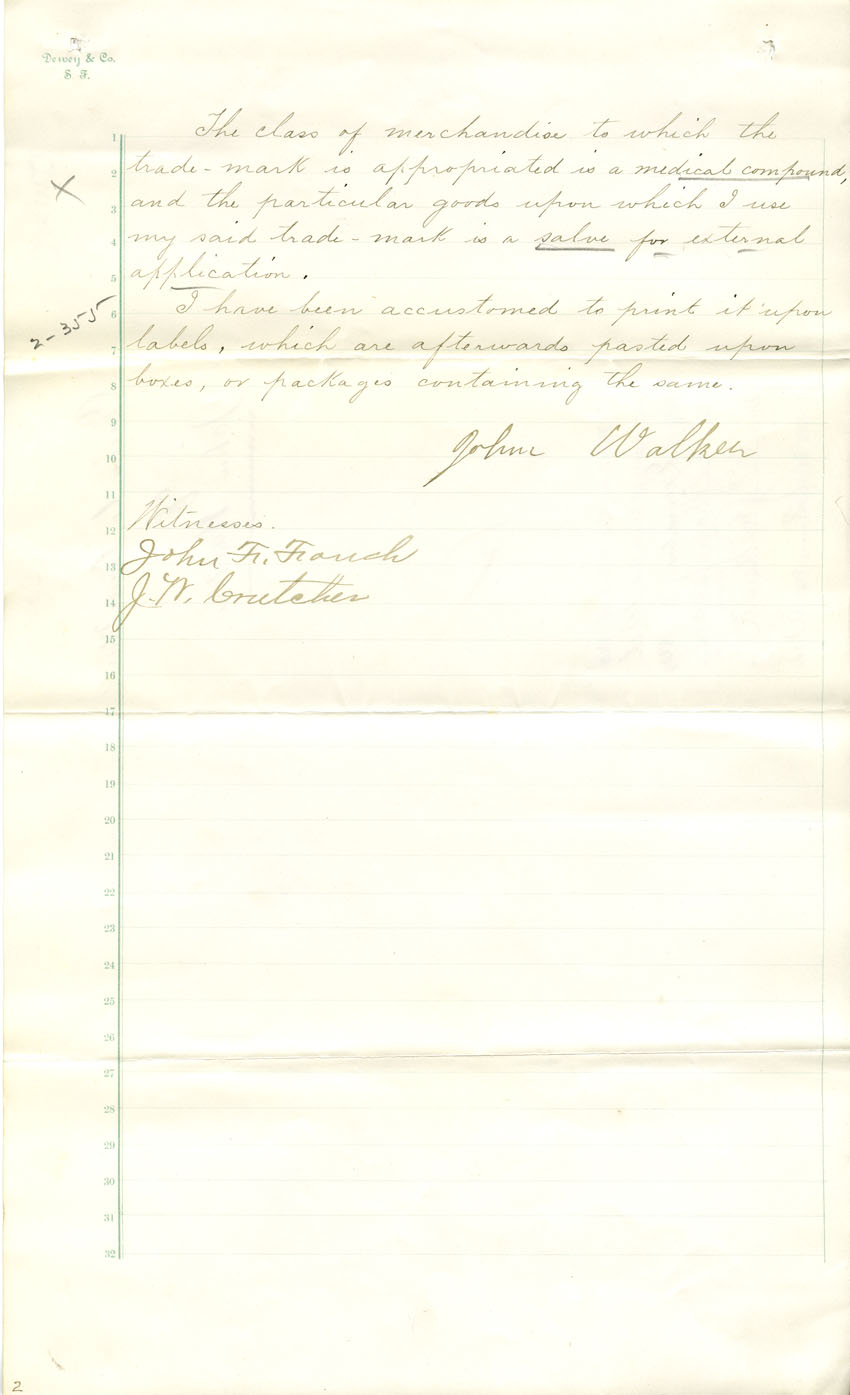 Dewey & Co.
S. F.
3
1 The class of merchandise to which the
2 trade-mark is appropriated is a medical compound,
X
3 and the particular goods upon which I use
4 my said trade-mark is a salve for external
5 application.
2-355
6 I have been accustomed to print it upon
7 labels, which are afterwards pasted upon
8 boxes, or packages containing the same.
9
10 John Walker
11
12 Witnesses.
13 John F.
14 J. W. Crutcher
15
16
17
18
19
20
21
22
23
24
25
26
27
28
29
30
31
32
2